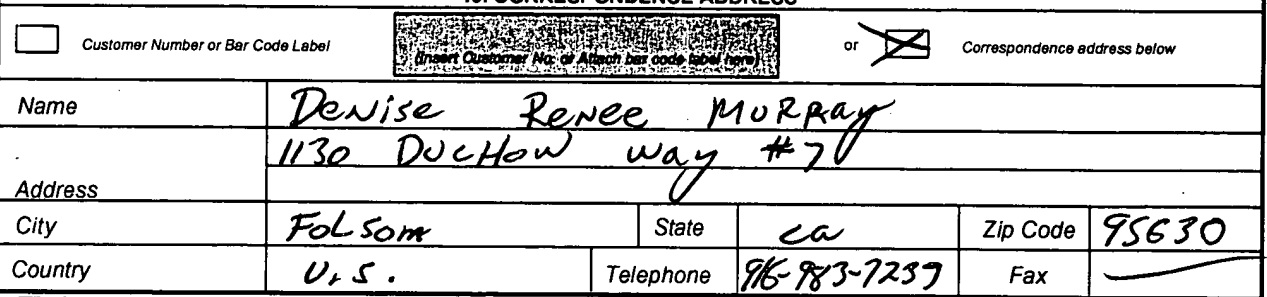 CORRESPONDENCE ADDRESS
Customer Number or Bar Code Label (Insert Customer No. or Attach bar code label here) or Correspondence address below
Name Denise Renee Murray
1130 Duchow Way #7
Address
City Folsom State ca Zip Code 95630
Country U.S. Telephone 916-983-7239 Fax